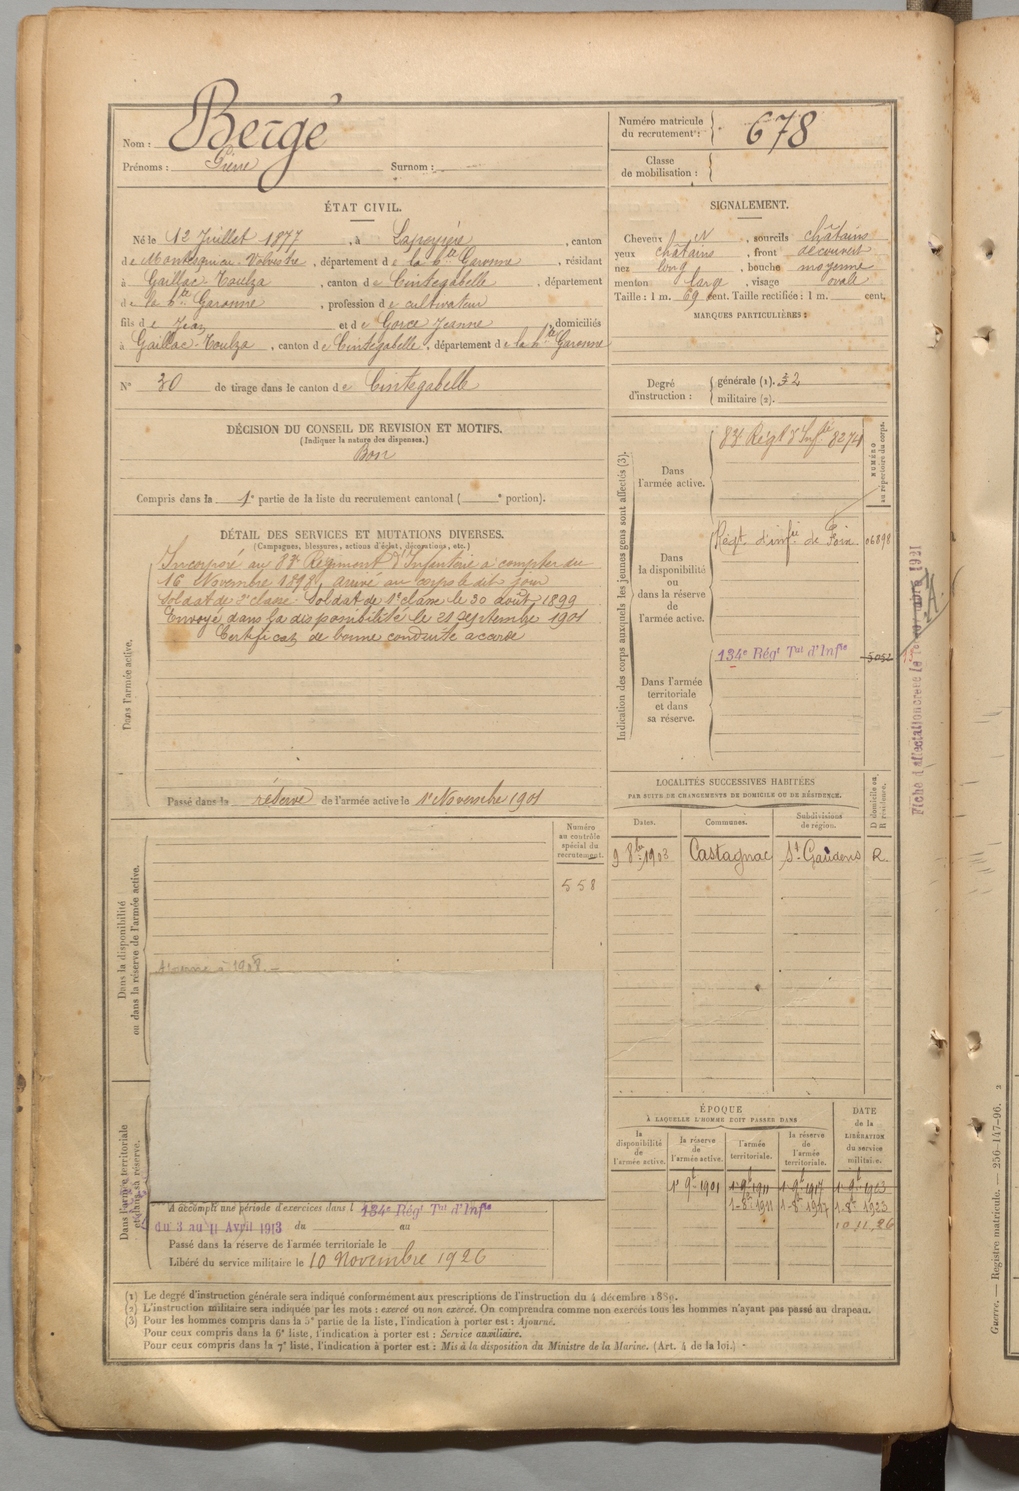 Nom : Bergé
Prénoms : Pierre Surnom :
Numéro matricule du recrutement : 678
Classe de mobilisation :
ÉTAT CIVIL.
Né le 12 Juillet 1877, à Lapeyrère, canton
de Montesquieu-Volvestre, département de la Hte Garonne, résidant
à Gaillac-Toulza, canton de Cintegabelle, département
de la Hte Garonne, profession de cultivateur
fils de Jean et de Gorce Jeanne, domiciliés
à Gaillac-Toulza, canton de Cintegabelle, département de la Hte Garonne
N° 30 de tirage dans le canton de Cintegabelle
SIGNALEMENT.
Cheveux et, sourcils châtains
yeux châtains, front découvert
nez long, bouche moyenne
menton large, visage ovale
Taille : 1 m. 69 cent. Taille rectifiée : 1 m. cent.
MARQUES PARTICULIÈRES :
Degré d'instruction : générale (1). 32
militaire (2).
DÉCISION DU CONSEIL DE REVISION ET MOTIFS.
(Indiquer la nature des dispenses.)
Bon
Compris dans la 1e partie de la liste du recrutement cantonal ( e portion).
DÉTAIL DES SERVICES ET MUTATIONS DIVERSES.
(Campagnes, blessures, actions d'éclat, décorations, etc.)
Dans l'armée active.
Incorporé au 83e Régiment d'Infanterie à compter du
16 Novembre 1898, arrivé au corps le dit jour
soldat de 2e classe. Soldat de 1e classe le 30 août 1899
Envoyé dans la disponibilité le 21 Septembre 1901
Certificat de bonne conduite accordé
Passé dans la réserve de l'armée active le 1er Novembre 1901
Indication des corps auxquels les jeunes gens sont affectés (3).
NUMÉRO au répertoire du corps.
Dans l'armée active.
83e Régt d'Infie 8274
Dans la disponibilité ou dans la réserve de l'armée active.
Régt d'infie de Foix 06898
Dans l'armée territoriale et dans sa réserve.
134e Régt Tal d'Infie 5052
Fiche d'affectation créée le 1921
LOCALITÉS SUCCESSIVES HABITÉES
PAR SUITE DE CHANGEMENTS DE DOMICILE OU DE RÉSIDENCE.
Dates. Communes. Subdivisions de région. D domicile ou R résidence.
9 8bre 1903 Castagnac St Gaudens R
Dans la disponibilité ou dans la réserve de l'armée active.
Numéro au contrôle spécial du recrutement.
558
à 1908.
Dans l'armée territoriale et dans sa réserve.
A accompli une période d'exercices dans l 134e Régt Tal d'Infie
du 3 au 11 Avril 1913 du au
Passé dans la réserve de l'armée territoriale le
Libéré du service militaire le 10 Novembre 1926
ÉPOQUE
À LAQUELLE L'HOMME DOIT PASSER DANS
la disponibilité de l'armée active. la réserve de l'armée active. l'armée territoriale. la réserve de l'armée territoriale. DATE de la LIBÉRATION du service militaire.
1e 9bre 1901 1e 9bre 1911 1e 9bre 1917 1e 9bre 1923
1-8bre 1911 1-8bre 1917 1-8bre 1923
10.11.26
(1) Le degré d'instruction générale sera indiqué conformément aux prescriptions de l'instruction du 4 décembre 1889.
(2) L'instruction militaire sera indiquée par les mots : exercé ou non exercé. On comprendra comme non exercés tous les hommes n'ayant pas passé au drapeau.
(3) Pour les hommes compris dans la 5e partie de la liste, l'indication à porter est : Ajourné.
Pour ceux compris dans la 6e liste, l'indication à porter est : Service auxiliaire.
Pour ceux compris dans la 7e liste, l'indication à porter est : Mis à la disposition du Ministre de la Marine. (Art. 4 de la loi.)
Guerre. — Registre matricule. — 256-147-96. 2